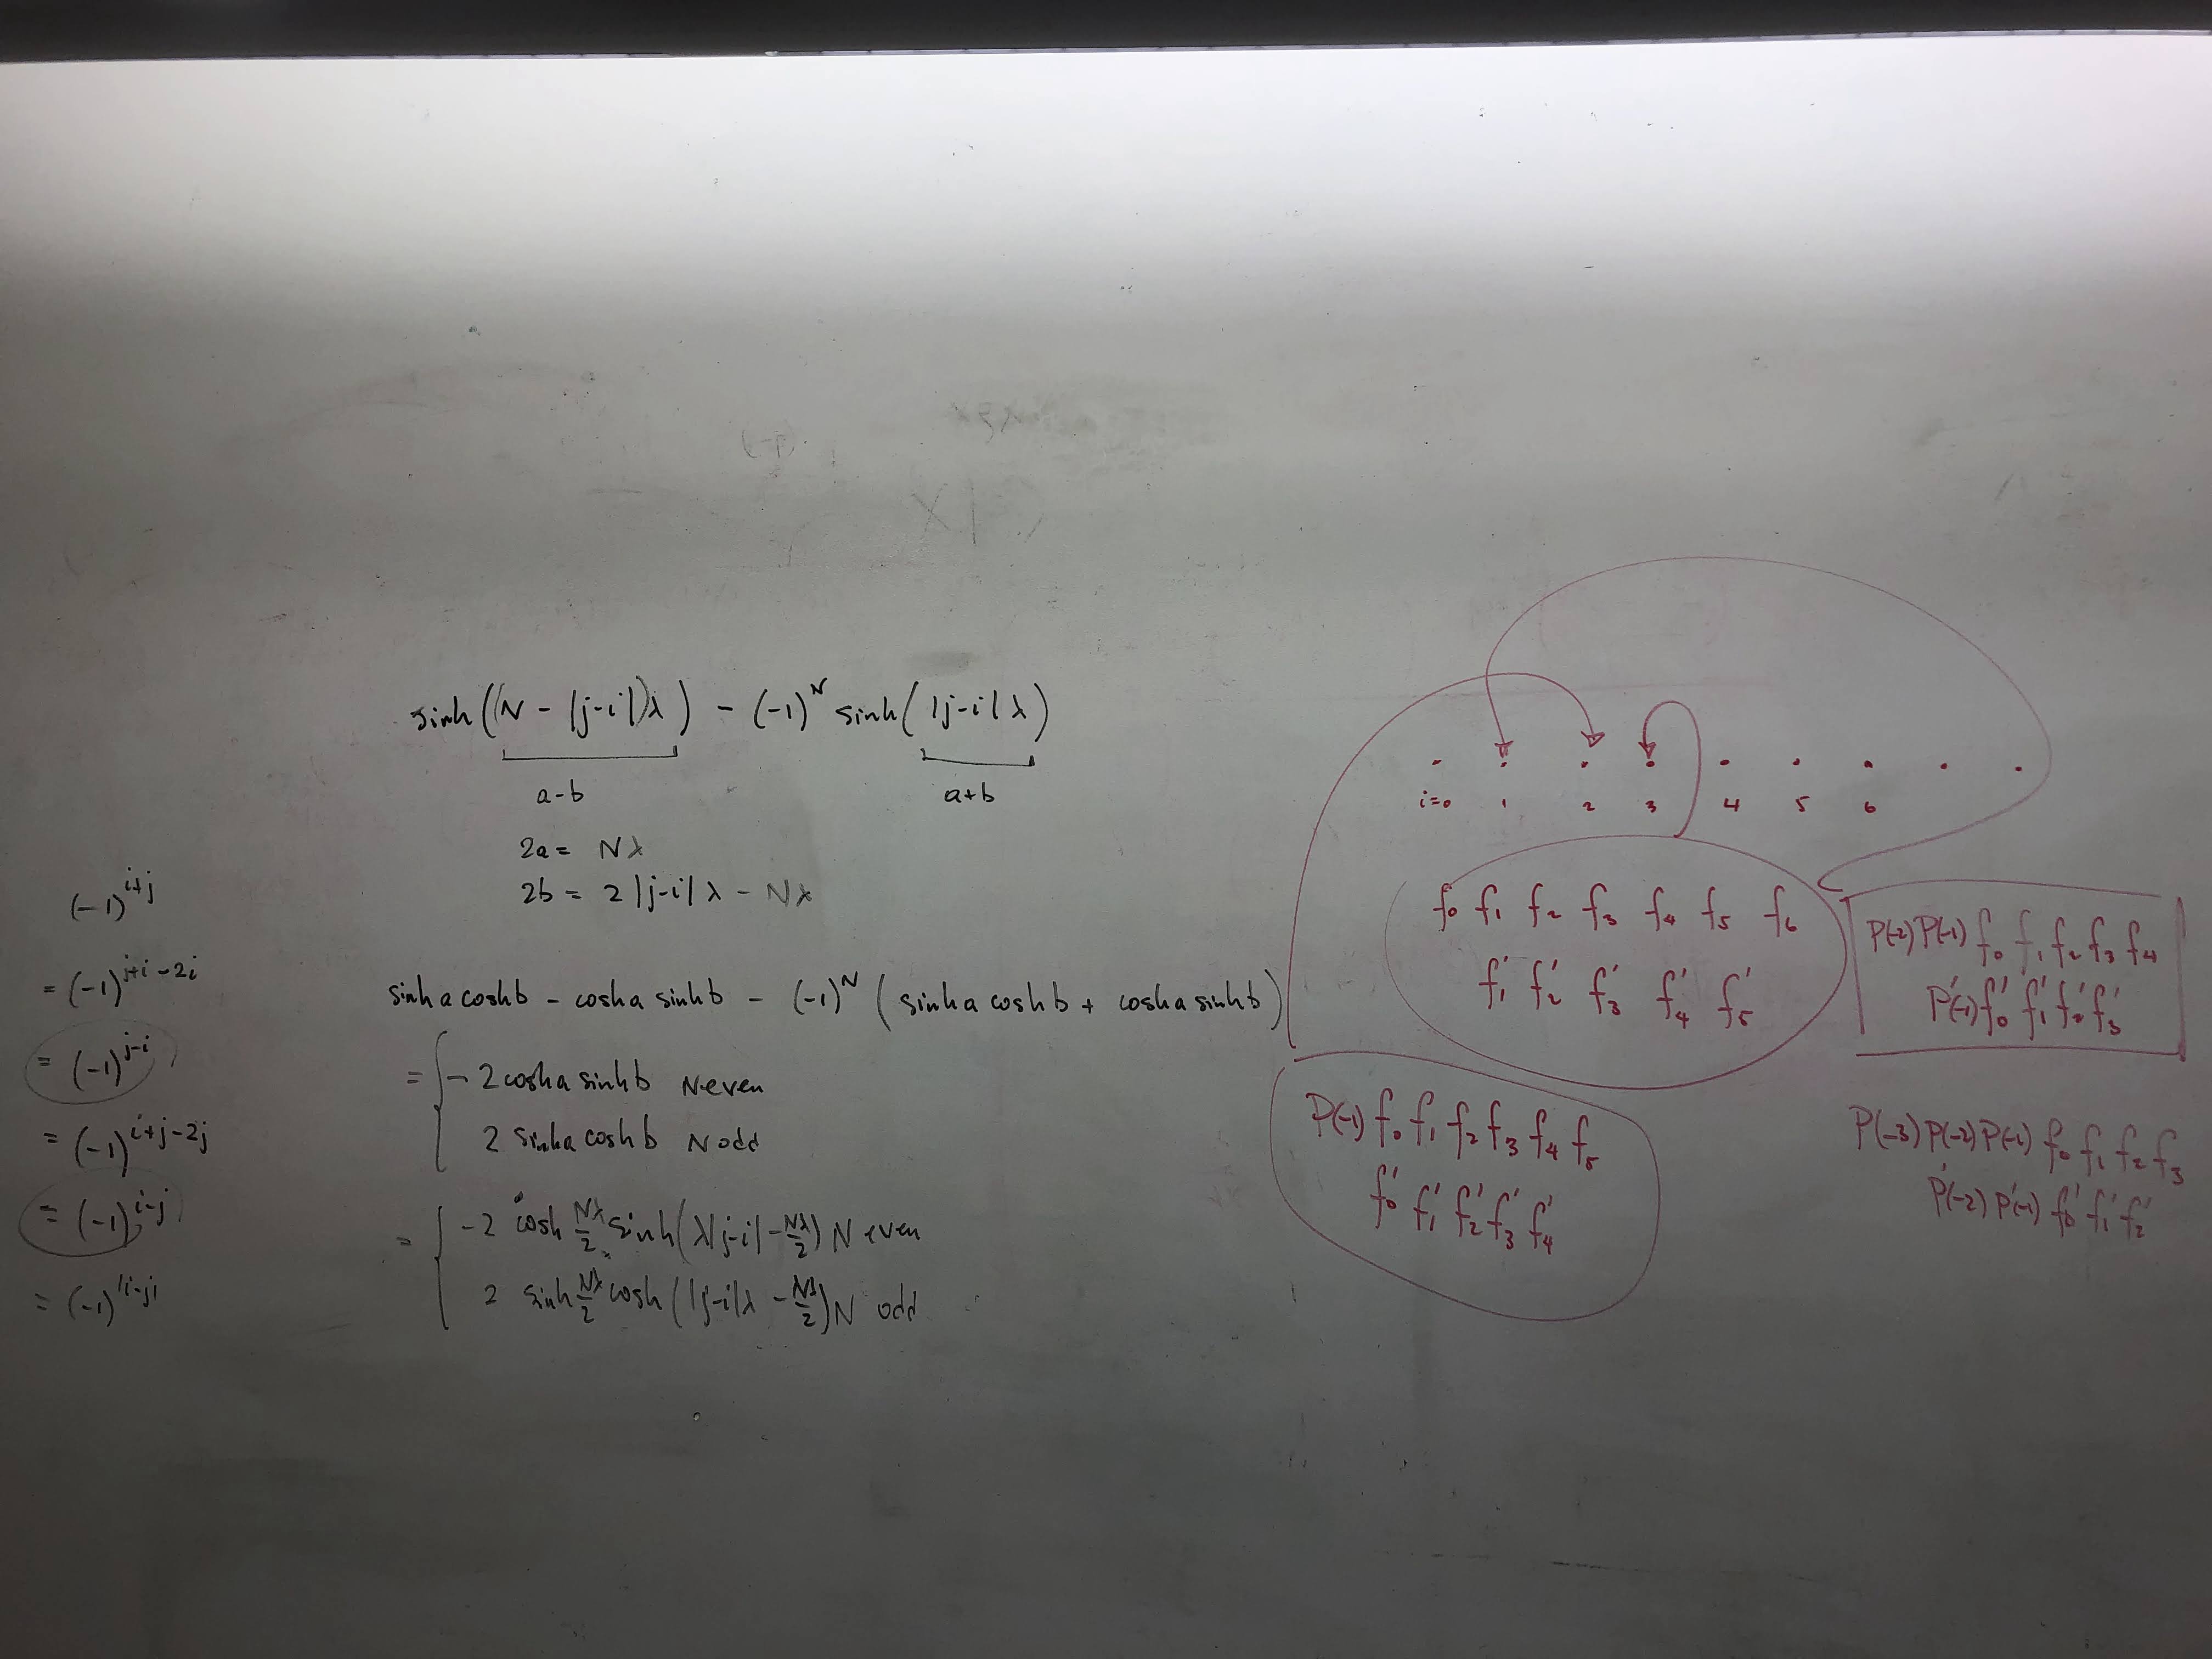 sinh((N - |j-i|)λ) - (-1)^N sinh(|j-i|λ)
a-b
a+b
2a = Nλ
2b = 2|j-i|λ - Nλ
sinh a cosh b - cosh a sinh b - (-1)^N (sinh a cosh b + cosh a sinh b)
= { - 2 cosh a sinh b N even
2 sinh a cosh b N odd
= { -2 cosh Nλ/2 sinh(λ|j-i| - Nλ/2) N even
2 sinh Nλ/2 cosh(|j-i|λ - Nλ/2) N odd
(-1)^{i+j}
= (-1)^{j+i-2i}
= (-1)^{j-i}
= (-1)^{i+j-2j}
= (-1)^{i-j}
= (-1)^{|i-j|}
i=0 1 2 3 4 5 6
f₀ f₁ f₂ f₃ f₄ f₅ f₆
f₁' f₂' f₃' f₄' f₅'
P(-2) P(-1) f₀ f₁ f₂ f₃ f₄
P'(-1) f₀' f₁' f₂' f₃'
P(-1) f₀ f₁ f₂ f₃ f₄ f₅
f₀' f₁' f₂' f₃' f₄'
P(-3) P(-2) P(-1) f₀ f₁ f₂ f₃
P'(-2) P'(-1) f₀' f₁' f₂'